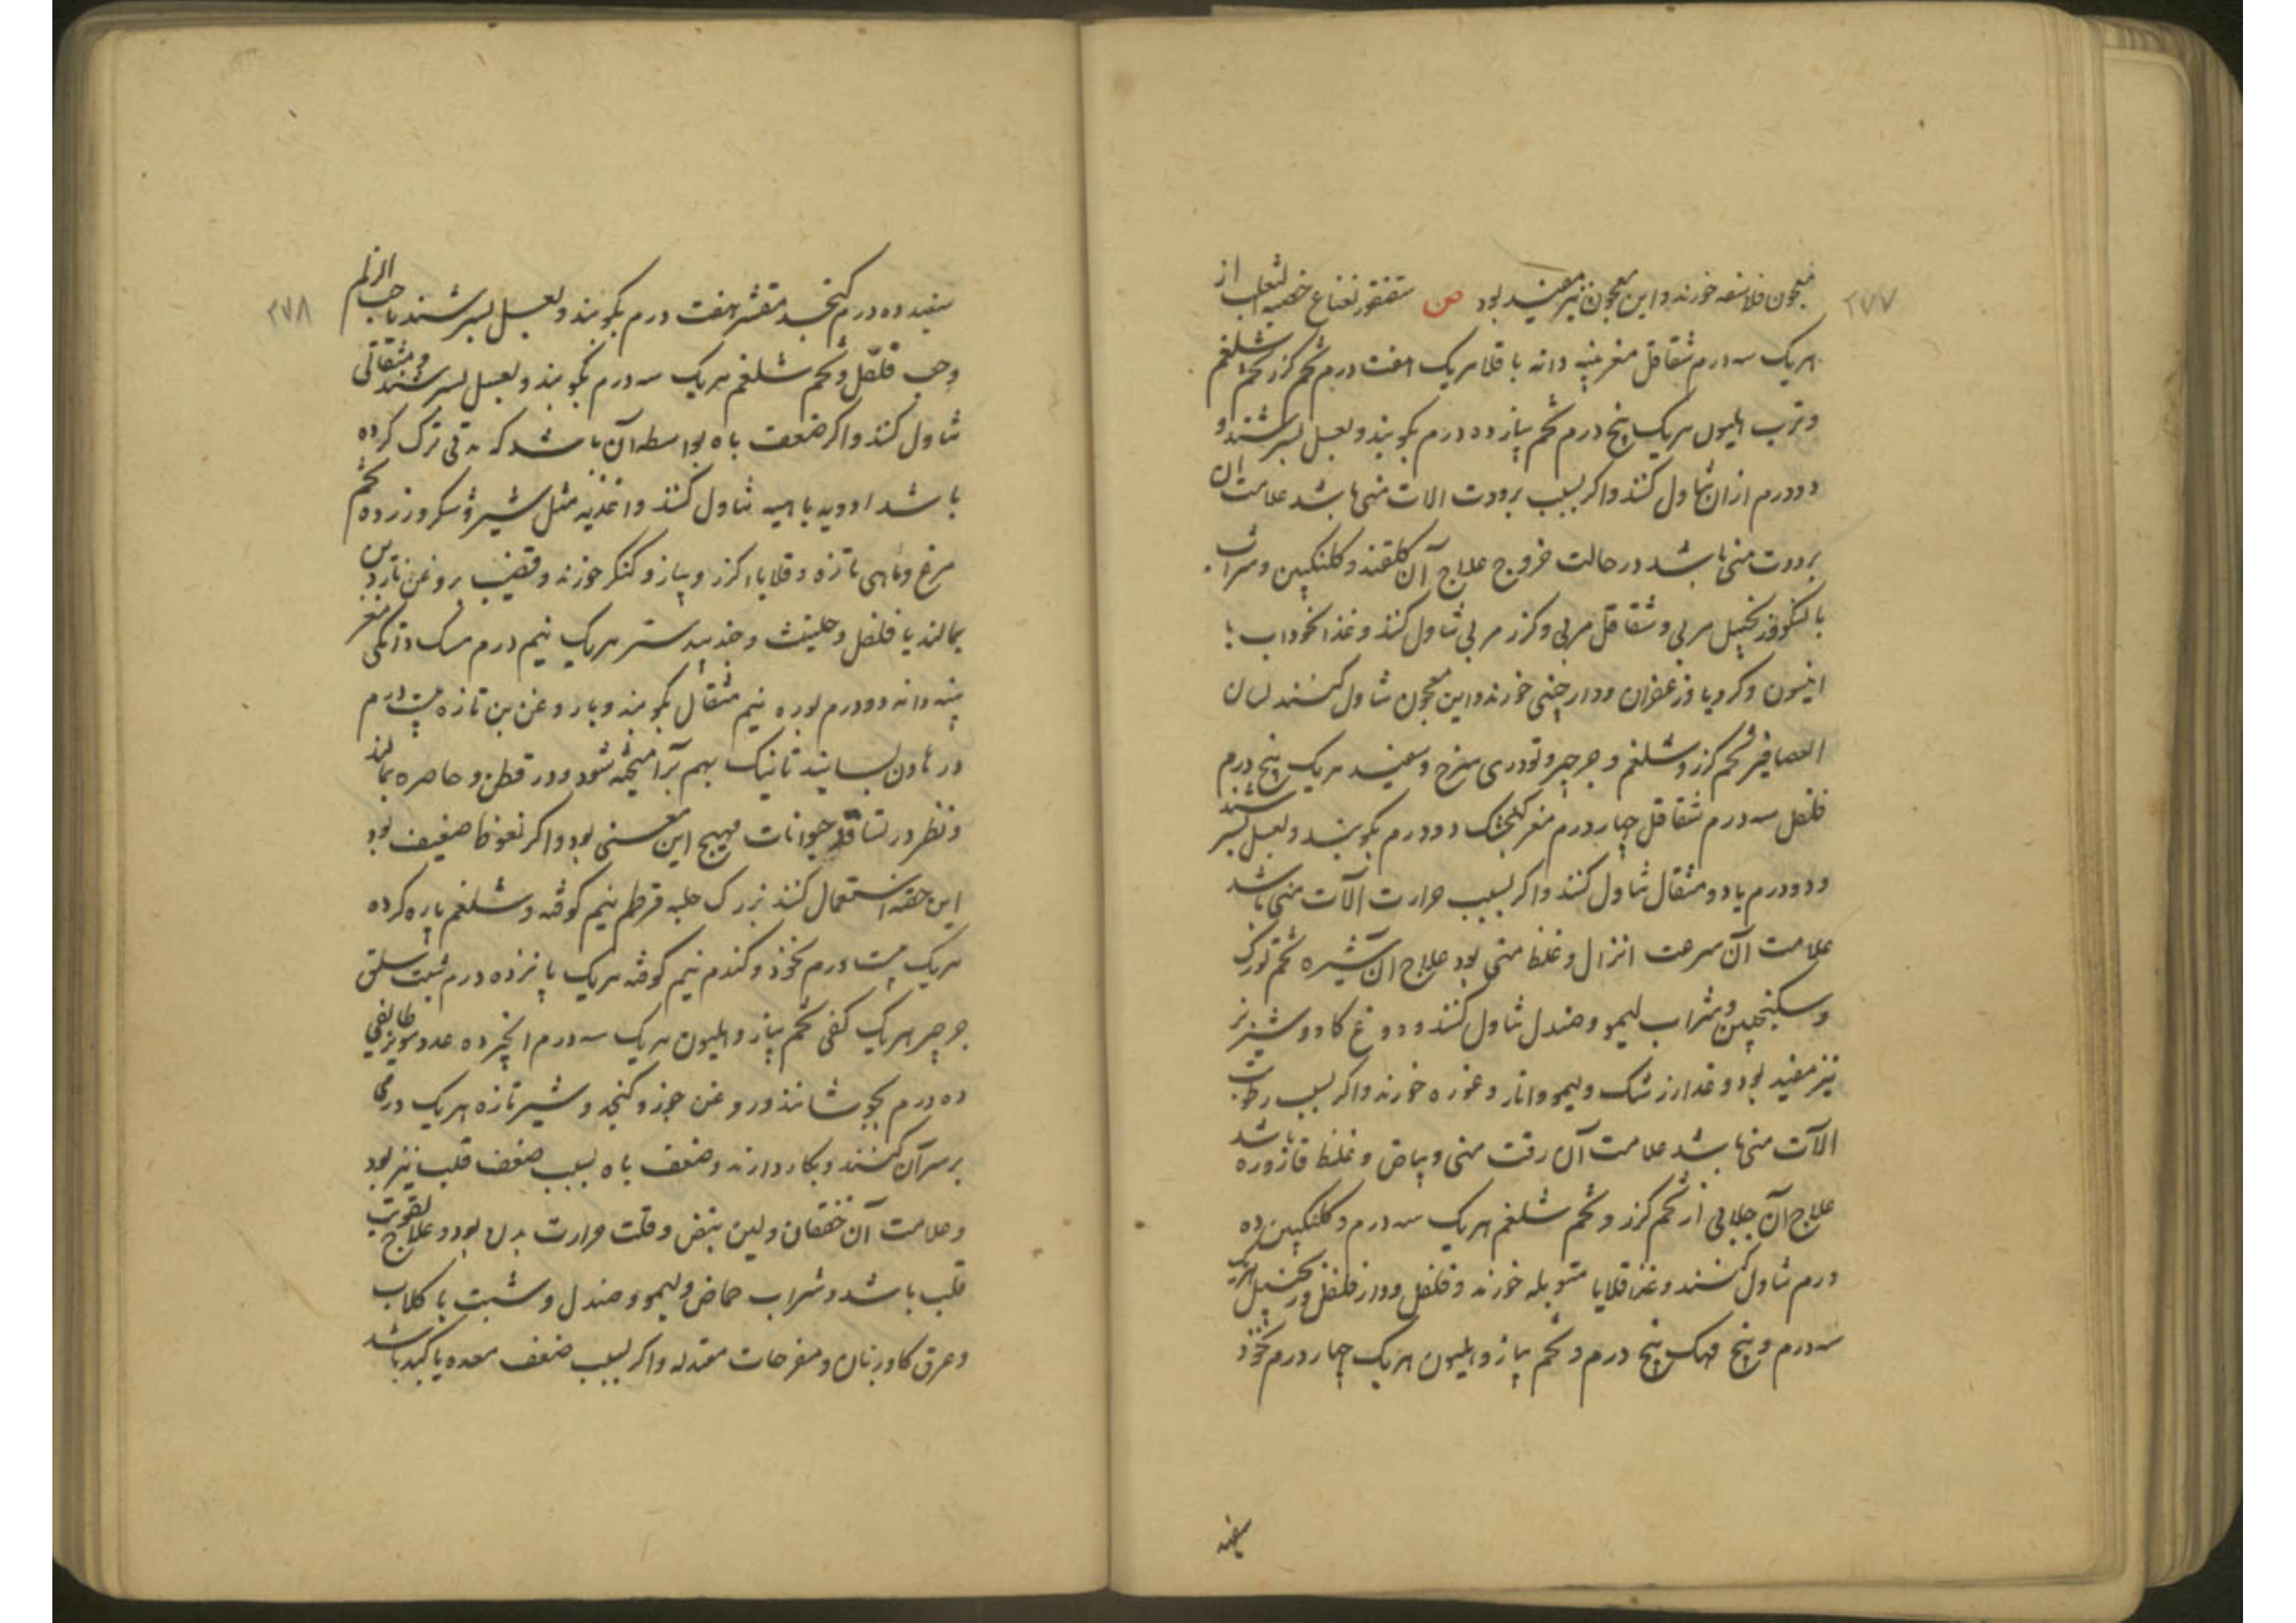 ۲۷۷
معجون فلاسفه خورند و این معجون نیز مفید بود ص سقنقور نعناع خصیه الثعلب از
هریک سه درم شقاقل مغز پنبه دانه باقلا هریک هفت درم تخم کزر تخم شلغم
وترب هلیون هریک پنج درم تخم پیاز ده درم بکوبند و بعسل بسرشند و
دو درم ازان تناول کنند واکر بسبب برودت الات منی باشد علامت ان
برودت منی باشد در حالت خروج علاج آن کلقند و کلنکبین وشراب
بالنکو وزنجبیل مربی و شقاقل مربی و کزر مربی تناول کنند وغذا نخوداب با
انیسون وکرویا وزعفران ودارچینی خورند واین معجون تناول کنند لسان
العصافیر تخم کزر وشلغم وجرجیر وتودری سرخ وسفید هریک پنج درم
فلفل سه درم شقاقل چهار درم مغز کنجشک دو درم بکوبند وبعسل بسرشند
ودو درم یا دو مثقال تناول کنند واکر بسبب حرارت آلات منی باشد
علامت آن سرعت انزال وغلظ منی بود علاج آن شیره تخم تورک
وسکنجبین وشراب لیمو وصندل تناول کنند ودوغ کاو وشیر بز
نیز مفید بود وغدا زرشک ولیمو وانار وغوره خورند واکر بسبب رطوبت
الآت منی باشد علامت آن رقت منی وبیاض وغلظ قاروره باشد
علاج آن جلابی از تخم کزر وتخم شلغم هریک سه درم وکلنکبین ده
درم تناول کنند وغذا قلایا متوبله خورند وفلفل ودارفلفل وزنجبیل هریک
سه درم وپنج مهک پنج درم وتخم پیاز وهلیون هریک چهار درم نخود
سفید
۲۷۸
سفید ده درم کنجد مقشر هفت درم بکوبند وبعسل بسرشند یا حب الزلم
وحب فلفل وتخم شلغم هریک سه درم بکوبند وبعسل بسرشند ومثقالی
تناول کنند واکر ضعف باه بواسطه آن باشد که مدتی ترک کرده
باشد ادویه باهیه تناول کنند واغذیه مثل شیر وشکر وزرده تخم
مرغ وماهی تازه وقلایا اکزر وپیاز وکنکر خورند وقضیب بروغن ناردین
بمالند یا فلفل وحلتیت وجندبیدستر هریک نیم درم مسک دانکی مغز
پنبه دانه دو درم بوره نیم مثقال بکوبند وبا روغن بن تازه بیست درم
در هاون بسایند تا نیک بهم برآمیخته شود ودر قطن وخاصره بمالند
ونظر در تسافد حیوانات مهیج این معنی بود واکر نعوظ ضعیف بود
این حقنه استعمال کنند بزرک حلبه قرطم نیم کوفته وشلغم پاره کرده
هریک بیست درم نخود وکندم نیم کوفته هریک پانزده درم شبت سلق
جرجیر هریک کفی تخم پیاز وهلیون هریک سه درم انجیر ده عدد مویز طایفی
ده درم بجوشانند وروغن جوز وکنجد وشیر تازه هریک درمی
بر سر آن کنند وبکار دارند وضعف باه بسبب ضعف قلب نیز بود
وعلامت آن خفقان ولین نبض وقلت حرارت بدن بود وعلاج تقویت
قلب باشد وشراب حماض ولیمو وصندل وشبت با کلاب
وعرق کاوزبان ومفرحات معتدله واکر بسبب ضعف معده یا کبد باشد